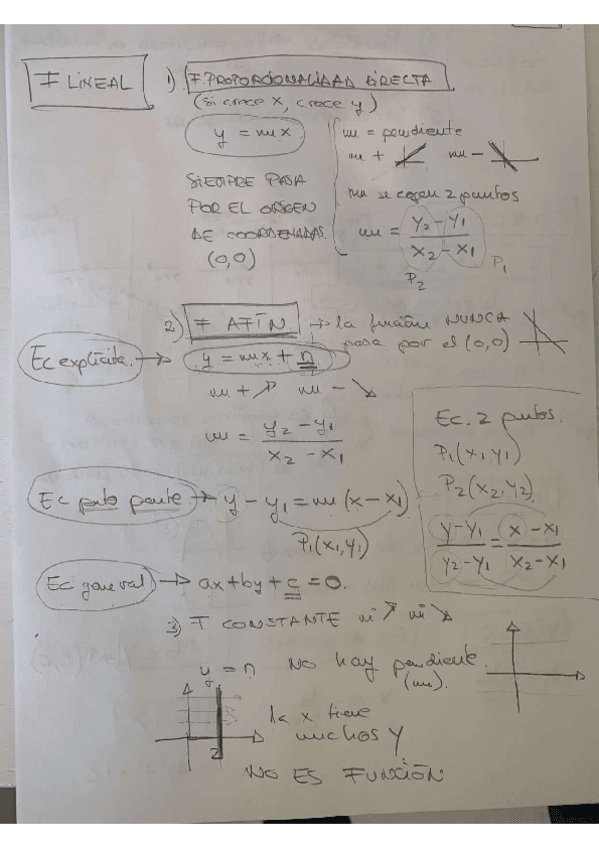 F. LINEAL
1) F. PROPORCIONALIDAD DIRECTA
(Si crece x, crece y)
y = mx
SIEMPRE PASA
POR EL ORIGEN
DE COORDENADAS.
(0,0)
m = pendiente
m + m -
m se cogen 2 puntos
m = y2 - y1 / x2 - x1
P2 P1
2) F AFÍN. → la función NUNCA
pasa por el (0,0)
Ec explícita. → y = mx + n
m + ↗ m - ↘
m = y2 - y1 / x2 - x1
Ec. 2 puntos.
P1 (x1, y1)
P2 (x2, y2)
y - y1 / y2 - y1 = x - x1 / x2 - x1
Ec punto → y - y1 = m (x - x1)
P1 (x1, y1)
Ec general → ax + by + c = 0.
3) F CONSTANTE ni ↗ ni ↘
y = n No hay pendiente.
(m).
la x tiene
muchos y
2
NO ES FUNCIÓN